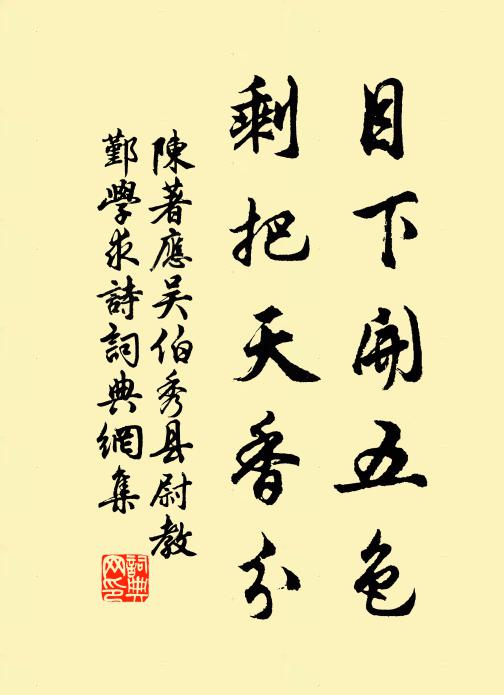 目下開五色
剩把天香分
陳著應吴伯秀县尉教
鄞學求詩詞典網集
詞典
网印